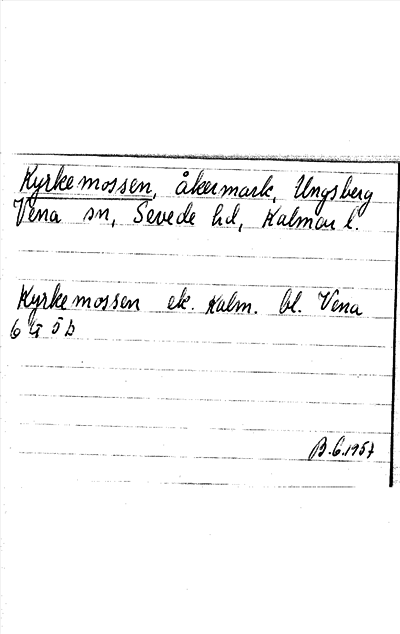 Kyrkemossen, åkermark, Ungsberg
Vena sn, Sevede hd, Kalmar l.
Kyrkemossen ek. Kalm. bl. Vena
6 G ö b
B.G.1957